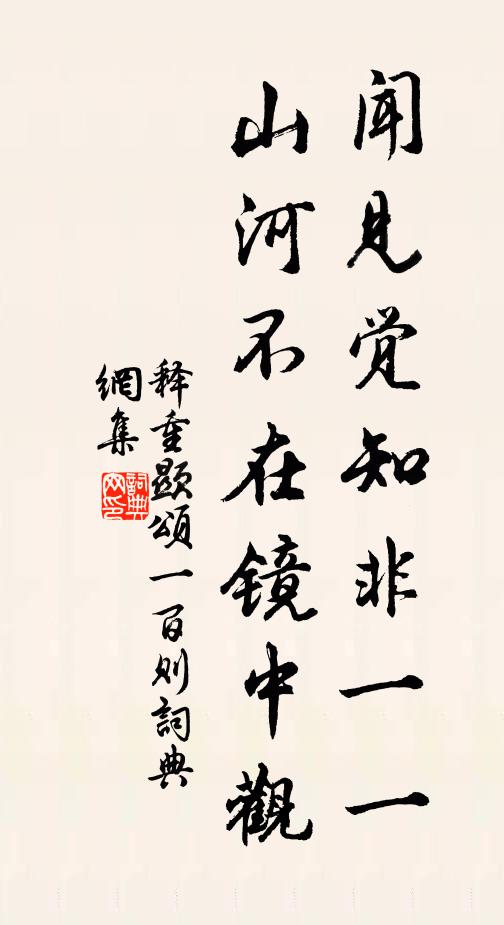 闻见觉知非一一
山河不在镜中觀
释重顯頌一百则詞典
網集
詞典
网印